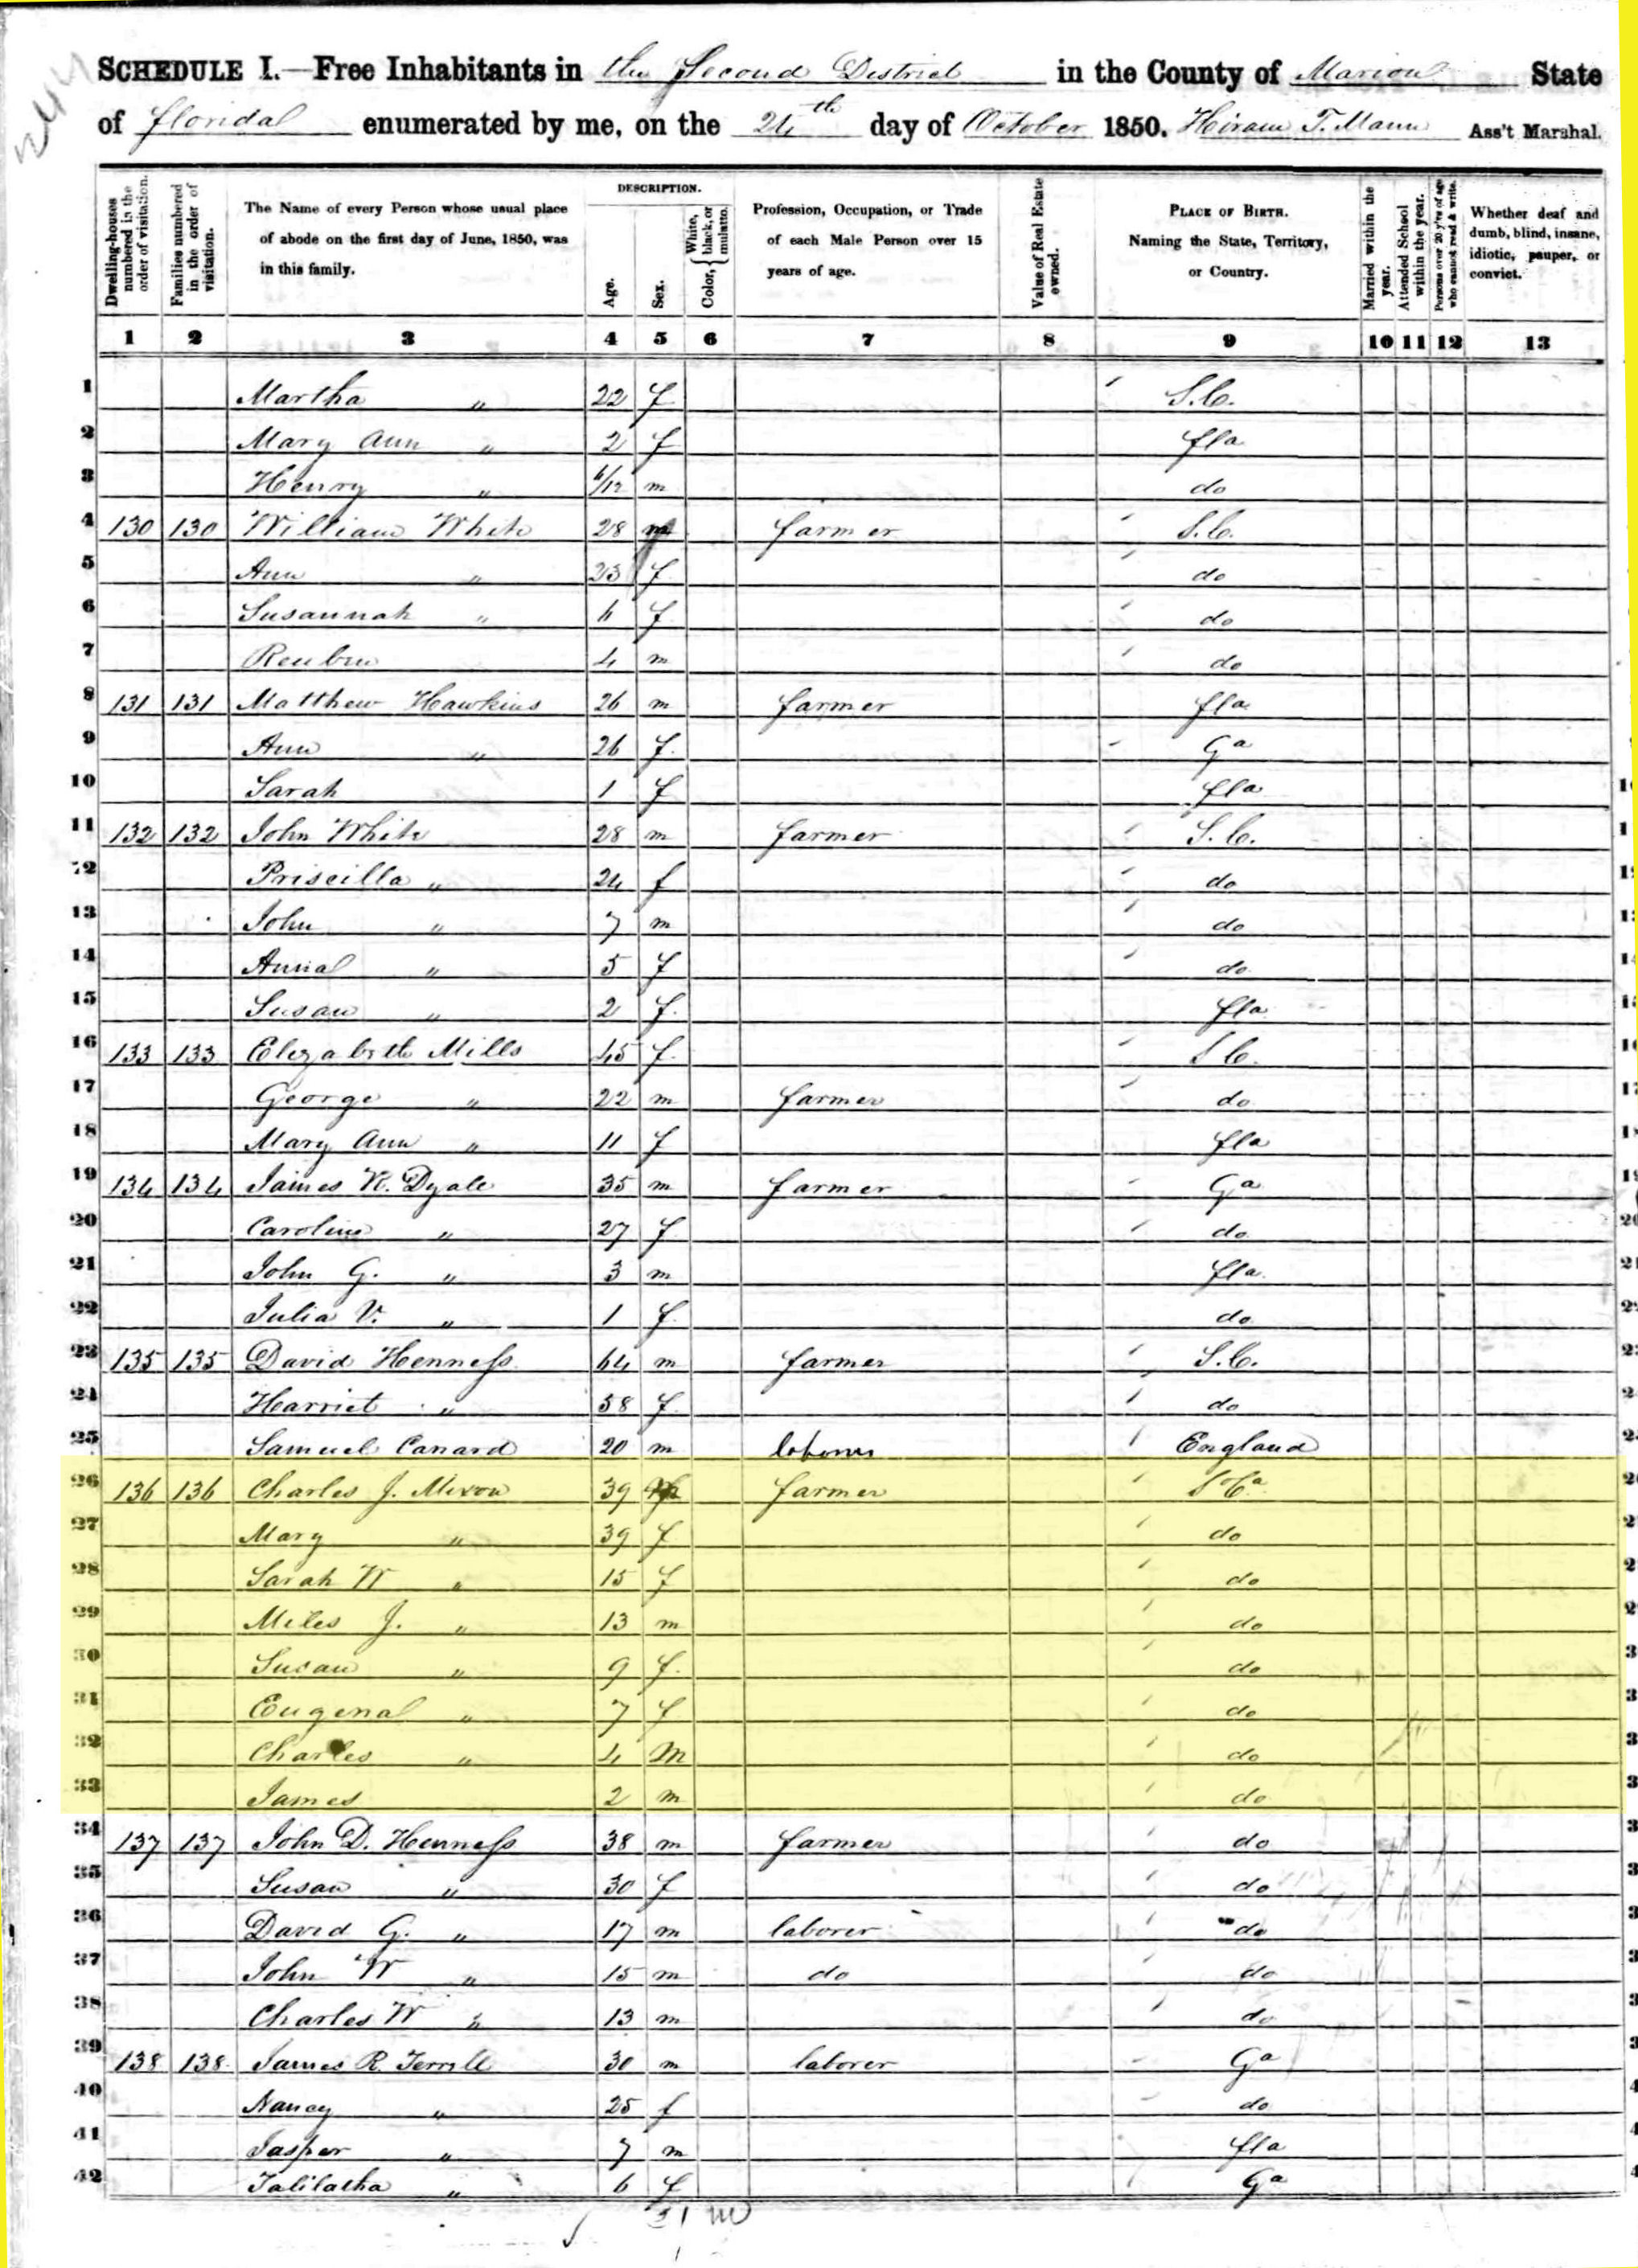 SCHEDULE I.—Free Inhabitants in the Second District in the County of Marion State
of Florida enumerated by me, on the 24th day of October 1850. Hiram T. Mann Ass't Marshal.
Dwelling-houses numbered in the order of visitation.
Families numbered in the order of visitation.
The Name of every Person whose usual place of abode on the first day of June, 1850, was in this family.
DESCRIPTION.
Age.
Sex.
Color, { White, black, or mulatto.
Profession, Occupation, or Trade of each Male Person over 15 years of age.
Value of Real Estate owned.
PLACE OF BIRTH. Naming the State, Territory, or Country.
Married within the year.
Attended School within the year.
Persons over 20 y'rs of age who cannot read & write.
Whether deaf and dumb, blind, insane, idiotic, pauper, or convict.
1 2 3 4 5 6 7 8 9 10 11 12 13
1 Martha " 22 f S.C.
2 Mary Ann " 2 f fla
3 Henry " 6/12 m do
4 130 130 William White 28 m farmer S.C.
5 Ann " 23 f do
6 Susannah " 6 f do
7 Reuben 4 m do
8 131 131 Matthew Hawkins 26 m farmer fla
9 Ann " 26 f. Ga
10 Sarah 1 f fla
11 132 132 John White 28 m farmer S.C.
12 Priscilla " 24 f do
13 John " 7 m do
14 Annal " 5 f do
15 Susan " 2 f. fla
16 133 133 Elizabeth Mills 45 f. S C.
17 George " 22 m farmer do
18 Mary Ann " 11 f fla
19 134 134 James R. Dyale 35 m farmer Ga
20 Caroline " 27 f do
21 John G. " 3 m fla
22 Julia V. " 1 f. do
23 135 135 David Henness 64 m farmer S.C.
24 Harriet " 58 f do
25 Samuel Canard 20 m laborer England
26 136 136 Charles J. Mixon 39 m farmer S Ca
27 Mary " 39 f do
28 Sarah W " 15 f do
29 Miles J. " 13 m do
30 Susan " 9 f. do
31 Eugenal " 7 f do
32 Charles " 4 M do
33 James 2 m do
34 137 137 John D. Henness 38 m farmer do
35 Susan " 30 f do
36 David G. " 17 m laborer do
37 John W " 15 m do do
38 Charles W " 13 m do
39 138 138 James R. Terrell 30 m laborer Ga
40 Nancy " 25 f do
41 Jasper " 7 m fla
42 Talilatha " 6 f Ga